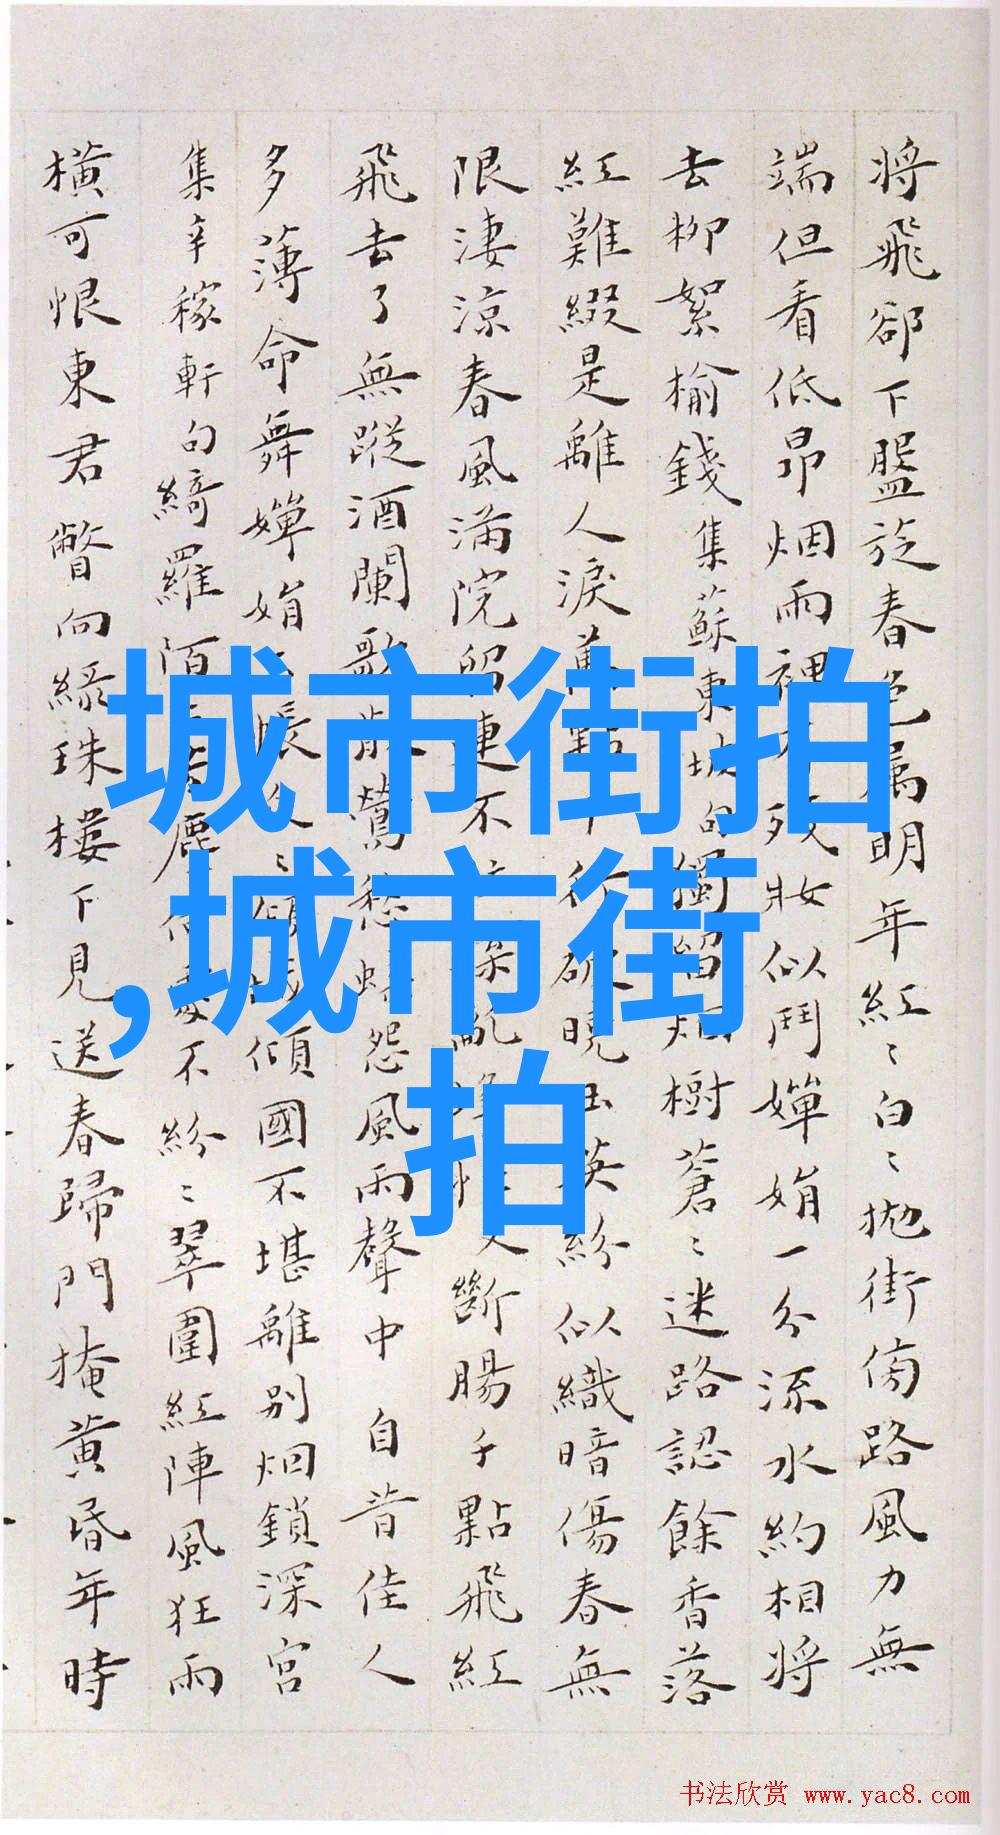 将飛卻下盤旋春色屬明年紅〻白〻拋街傍路風力無
端但看低昂烟雨裡妝似鬥嬋娟一分流水約相将
去柳絮榆錢集蘇東坡句獨留烟樹蒼〻迷路認餘香落
紅難綴是離人淚萬點行破曉玉英紛似織暗傷春無
限淒涼春風滿院留連不斷腸千點飛紅
飛去了無蹤酒闌歌散鶯愁蝶怨風雨聲中 自昔佳人
多薄命舞嬋娟傾國不堪離別烟鎖深宮
集辛稼軒句綺羅陌不紛〻翠圍紅陣風狂雨
橫可恨東君瞥向綠珠樓下見送春歸門掩黃昏年時
城市街拍
,城市街
拍
书法欣赏 www.yac8.com